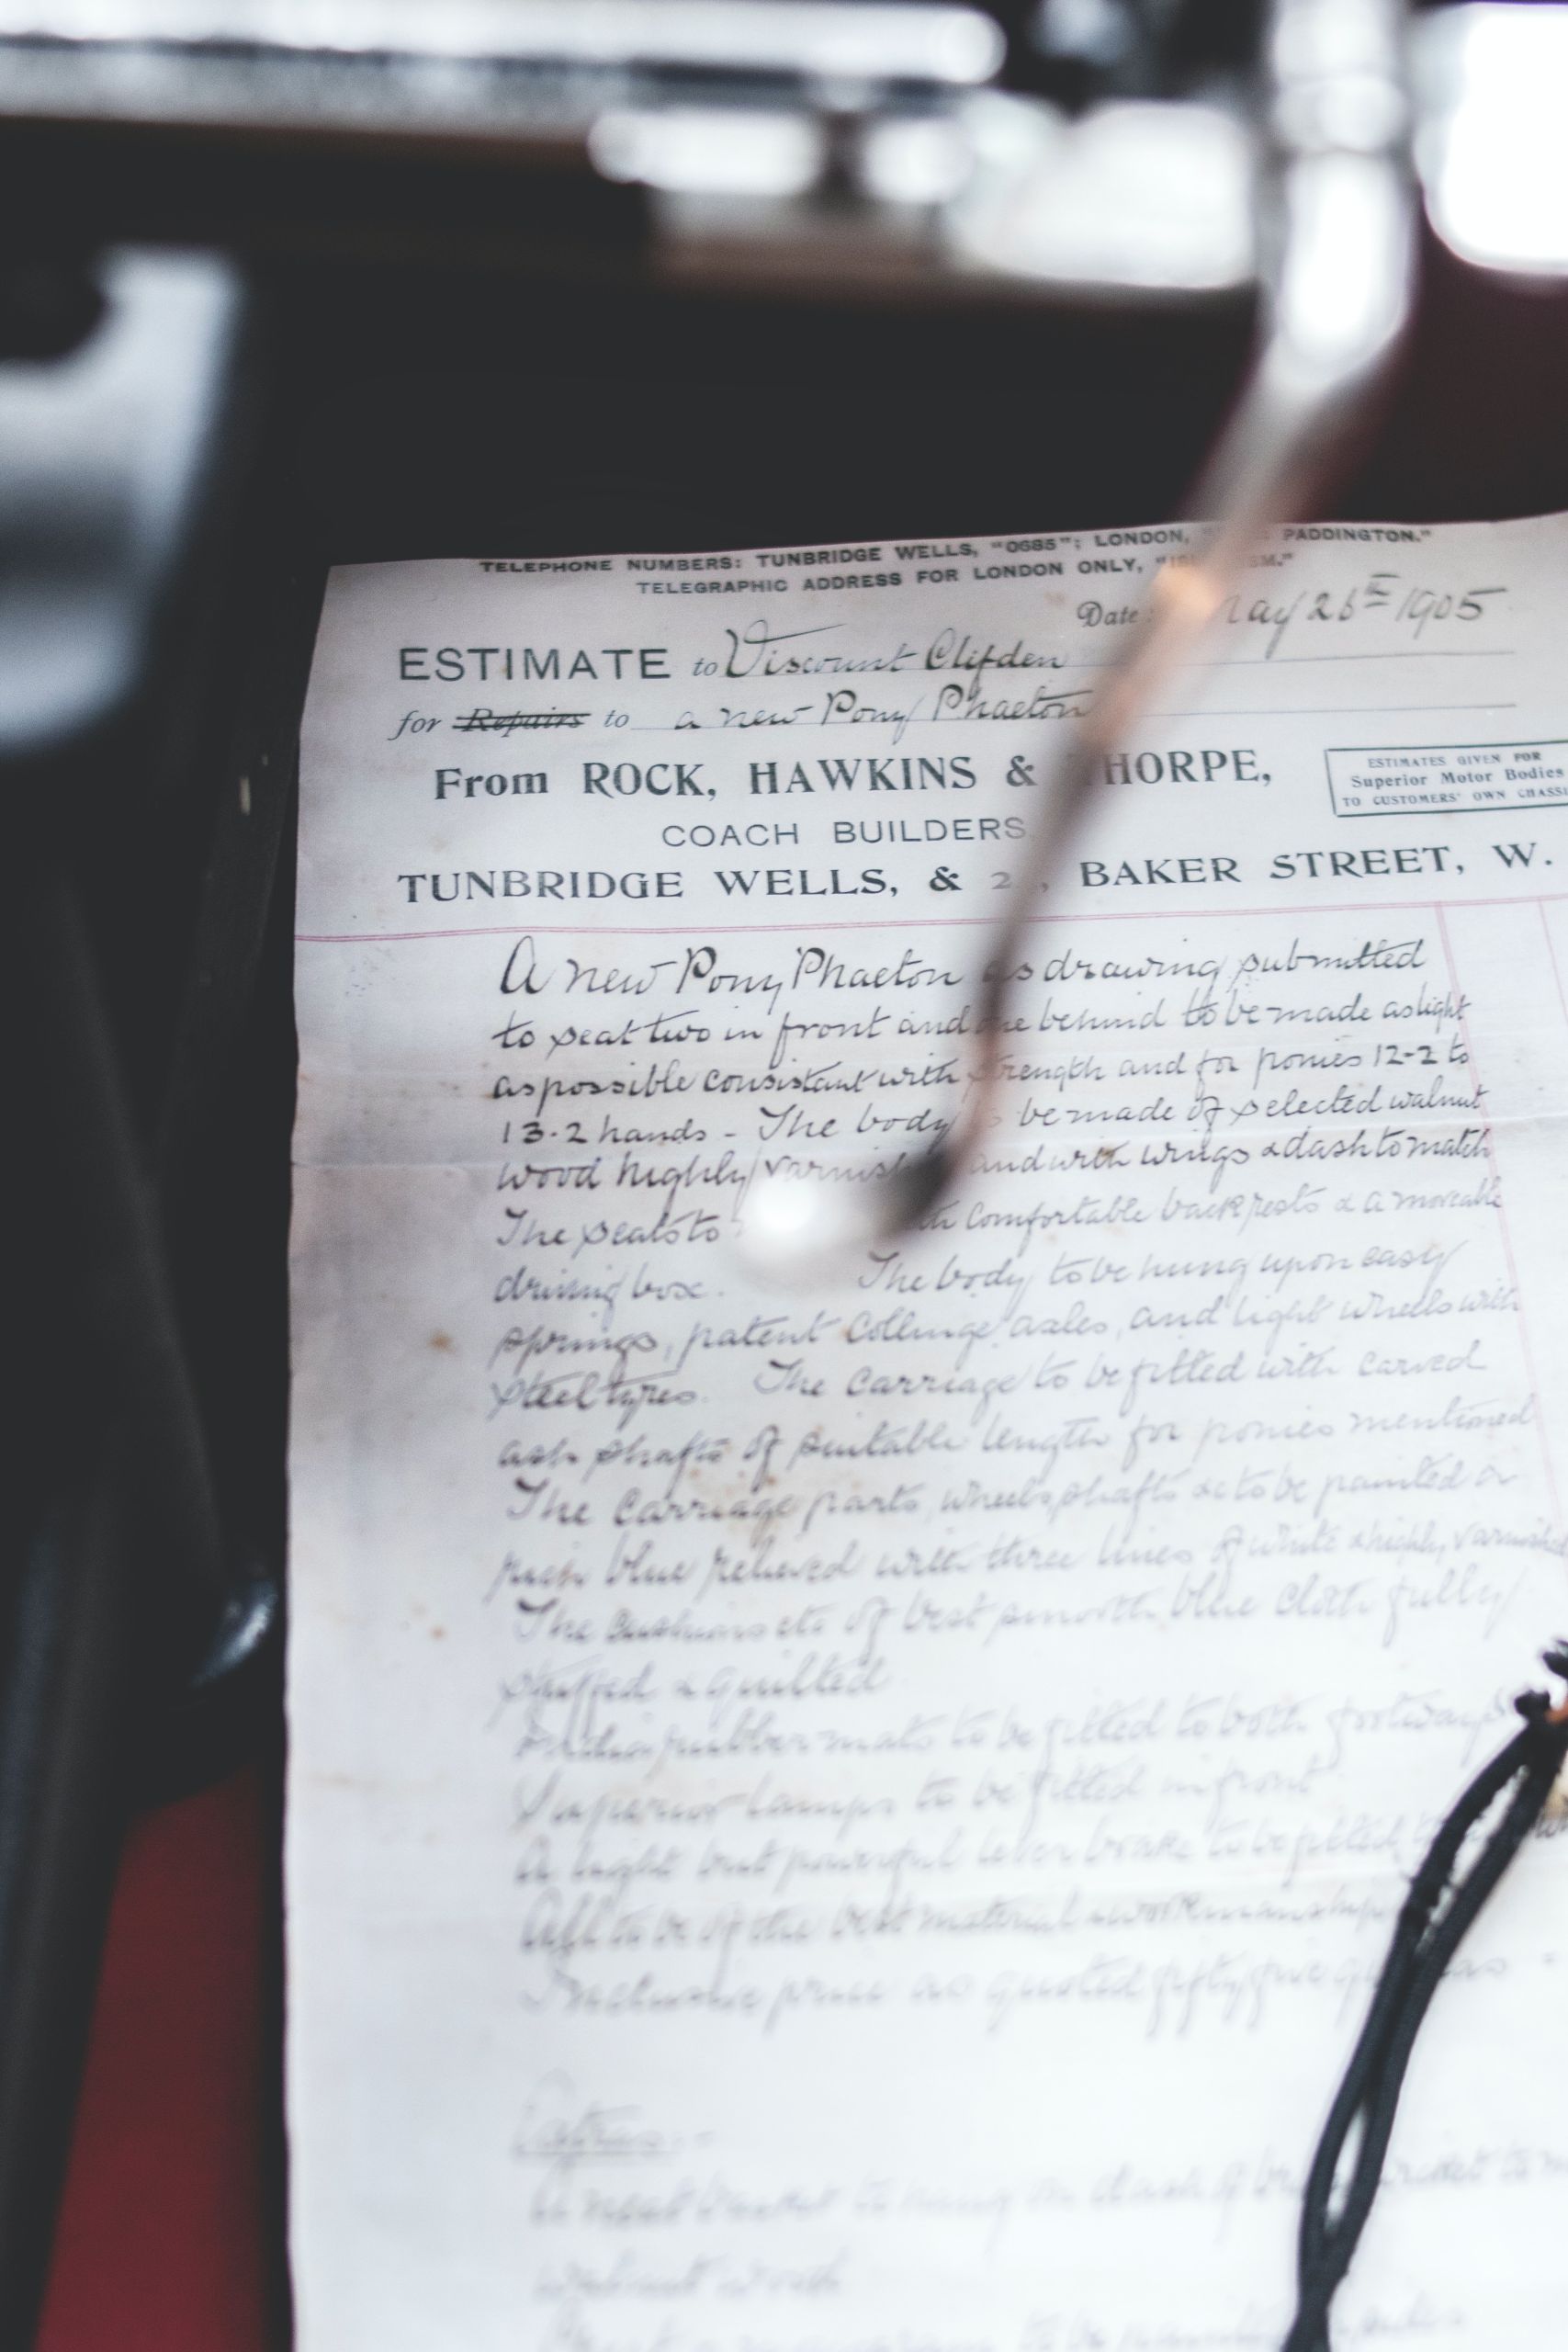 TELEPHONE NUMBERS: TUNBRIDGE WELLS, "0685"; LONDON, PADDINGTON."
TELEGRAPHIC ADDRESS FOR LONDON ONLY,
Date 1905
ESTIMATE to Viscount Clifden
for Repairs to a new Pony Phaeton
From ROCK, HAWKINS & THORPE,
ESTIMATES GIVEN FOR
Superior Motor Bodies
TO CUSTOMERS' OWN CHASSI
COACH BUILDERS
TUNBRIDGE WELLS, & BAKER STREET, W.
A new Pony Phaeton as drawing submitted
to seat two in front and behind to be made as light
as possible consistant with strength and for ponies 12-2 to
13-2 hands - The body be made of selected walnut
wood highly and with wings & dash to match
The seats to comfortable back rests & a moveable
driving box. The body to be hung upon easy
springs, patent Collinge axles, and light wheels with
steel tyres. The Carriage to be fitted with carved
ash shafts of suitable length for ponies mentioned
The Carriage parts, wheels, shafts &c to be painted a
blue relieved with three lines of white & highly varnished
The cushions etc of best smooth blue cloth fully
stuffed & quilted
rubber mats to be fitted to both footways
Superior lamps to be fitted in front
A light but powerful lever brake to be fitted
All to be of the best material & workmanship
Inclusive price as quoted fifty five
Extras:-
walnut wood